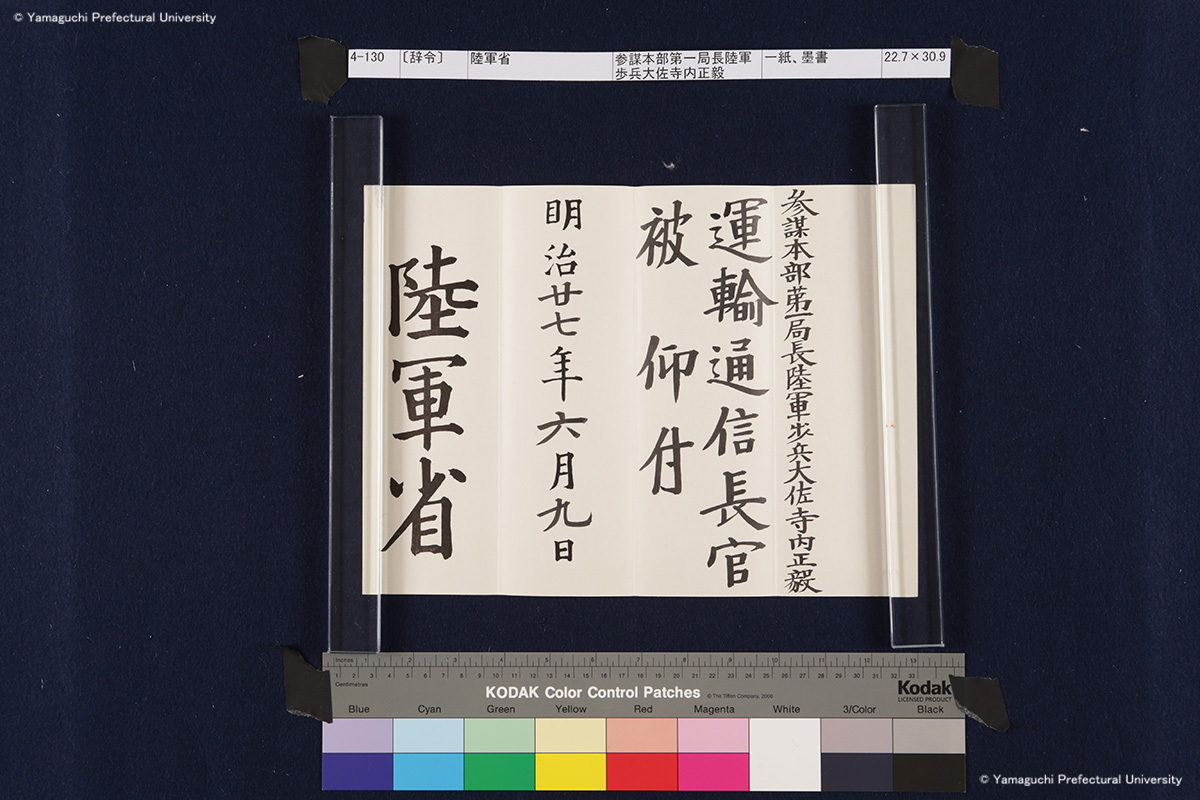 © Yamaguchi Prefectural University
4-130 〔辞令〕 陸軍省 参謀本部第一局長陸軍歩兵大佐寺内正毅 一紙、墨書 22.7×30.9
参謀本部第一局長陸軍歩兵大佐寺内正毅
運輸通信長官
被仰付
明治廿七年六月九日
陸軍省
Inches 1 2 3 4 5 6 7 8 9 10 11 12 13
1 2 3 4 5 6 7 8 9 10 11 12 13 14 15 16 17 18 19 20 21 22 23 24 25 26 27 28 29 30 31 32 33
Centimetres
KODAK Color Control Patches © The Tiffen Company, 2000
Kodak
LICENSED PRODUCT
Blue Cyan Green Yellow Red Magenta White 3/Color Black
© Yamaguchi Prefectural University